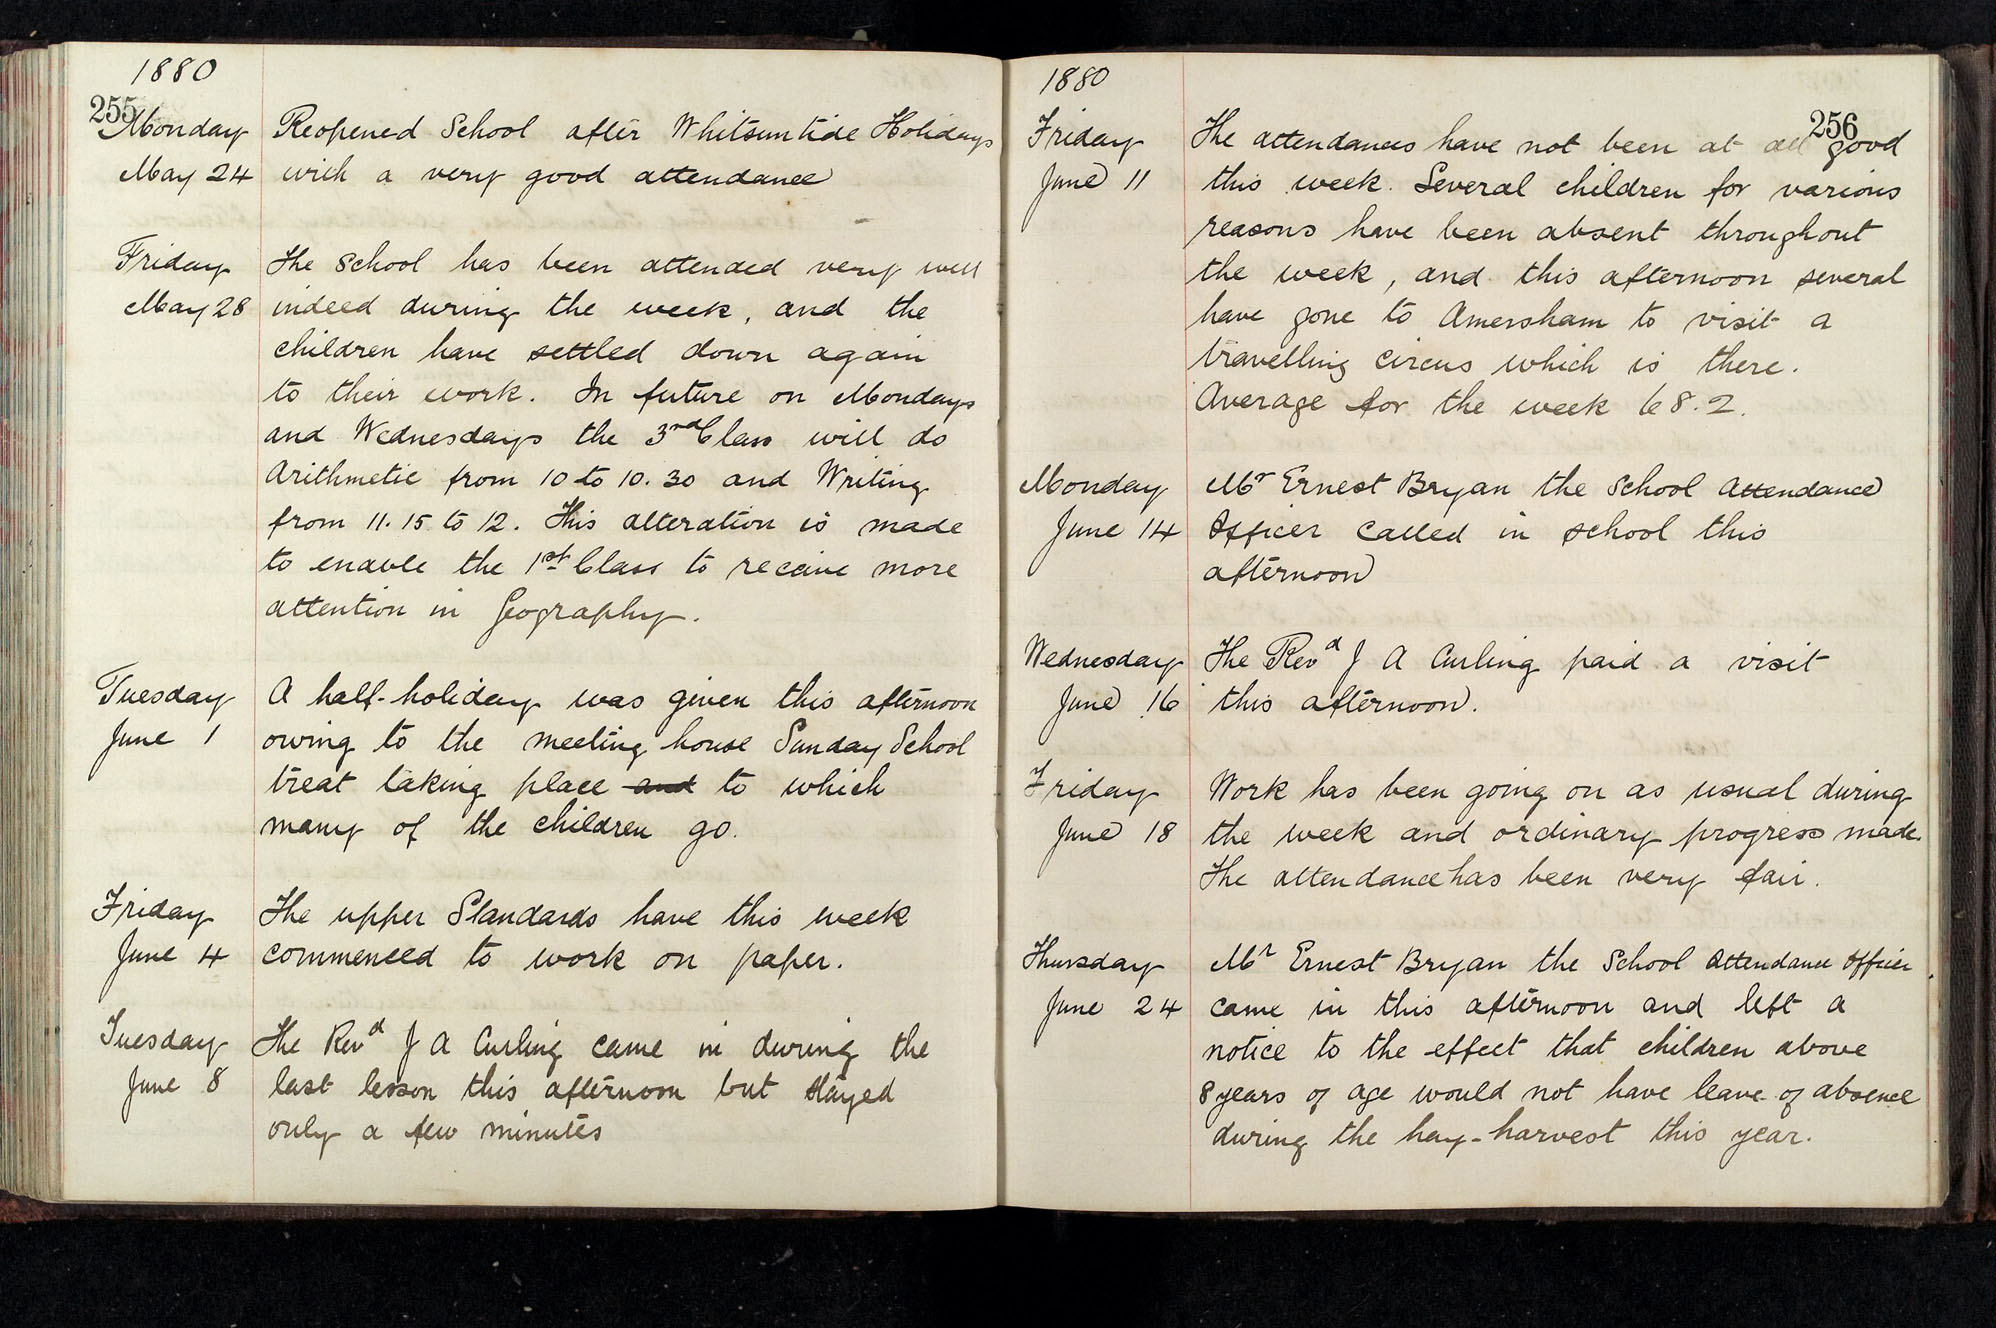 1880
255
Monday Reopened School after Whitsuntide Holidays
May 24 with a very good attendance
Friday The School has been attended very well
May 28 indeed during the week, and the
children have settled down again
to their work. In future on Mondays
and Wednesdays the 3rd Class will do
Arithmetic from 10 to 10.30 and Writing
from 11.15 to 12. This alteration is made
to enable the 1st Class to receive more
attention in Geography.
Tuesday A half-holiday was given this afternoon
June 1 owing to the meeting house Sunday School
treat taking place and to which
many of the children go.
Friday The upper Standards have this week
June 4 commenced to work on paper.
Tuesday The Revd J A Curling came in during the
June 8 last lesson this afternoon but stayed
only a few minutes
1880
256
Friday The attendances have not been at all good
June 11 this week. Several children for various
reasons have been absent throughout
the week, and this afternoon several
have gone to Amersham to visit a
travelling circus which is there.
Average for the week 68.2.
Monday Mr Ernest Bryan the School Attendance
June 14 Officer called in school this
afternoon
Wednesday The Revd J A Curling paid a visit
June 16 this afternoon.
Friday Work has been going on as usual during
June 18 the week and ordinary progress made.
The attendance has been very fair.
Thursday Mr Ernest Bryan the School Attendance Officer
June 24 came in this afternoon and left a
notice to the effect that children above
8 years of age would not have leave of absence
during the hay-harvest this year.